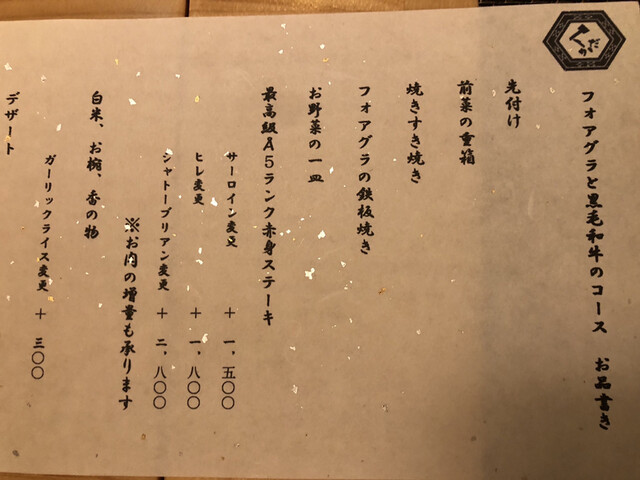 くのだ
フォアグラと黒毛和牛のコース お品書き
先付け
前菜の重箱
焼きすき焼き
フォアグラの鉄板焼き
お野菜の一皿
最高級A5ランク赤身ステーキ
サーロイン変更 + 一,五〇〇
ヒレ変更 + 一,八〇〇
シャトーブリアン変更 + 二,八〇〇
※お肉の増量も承ります
白米、お椀、香の物
ガーリックライス変更 + 三〇〇
デザート